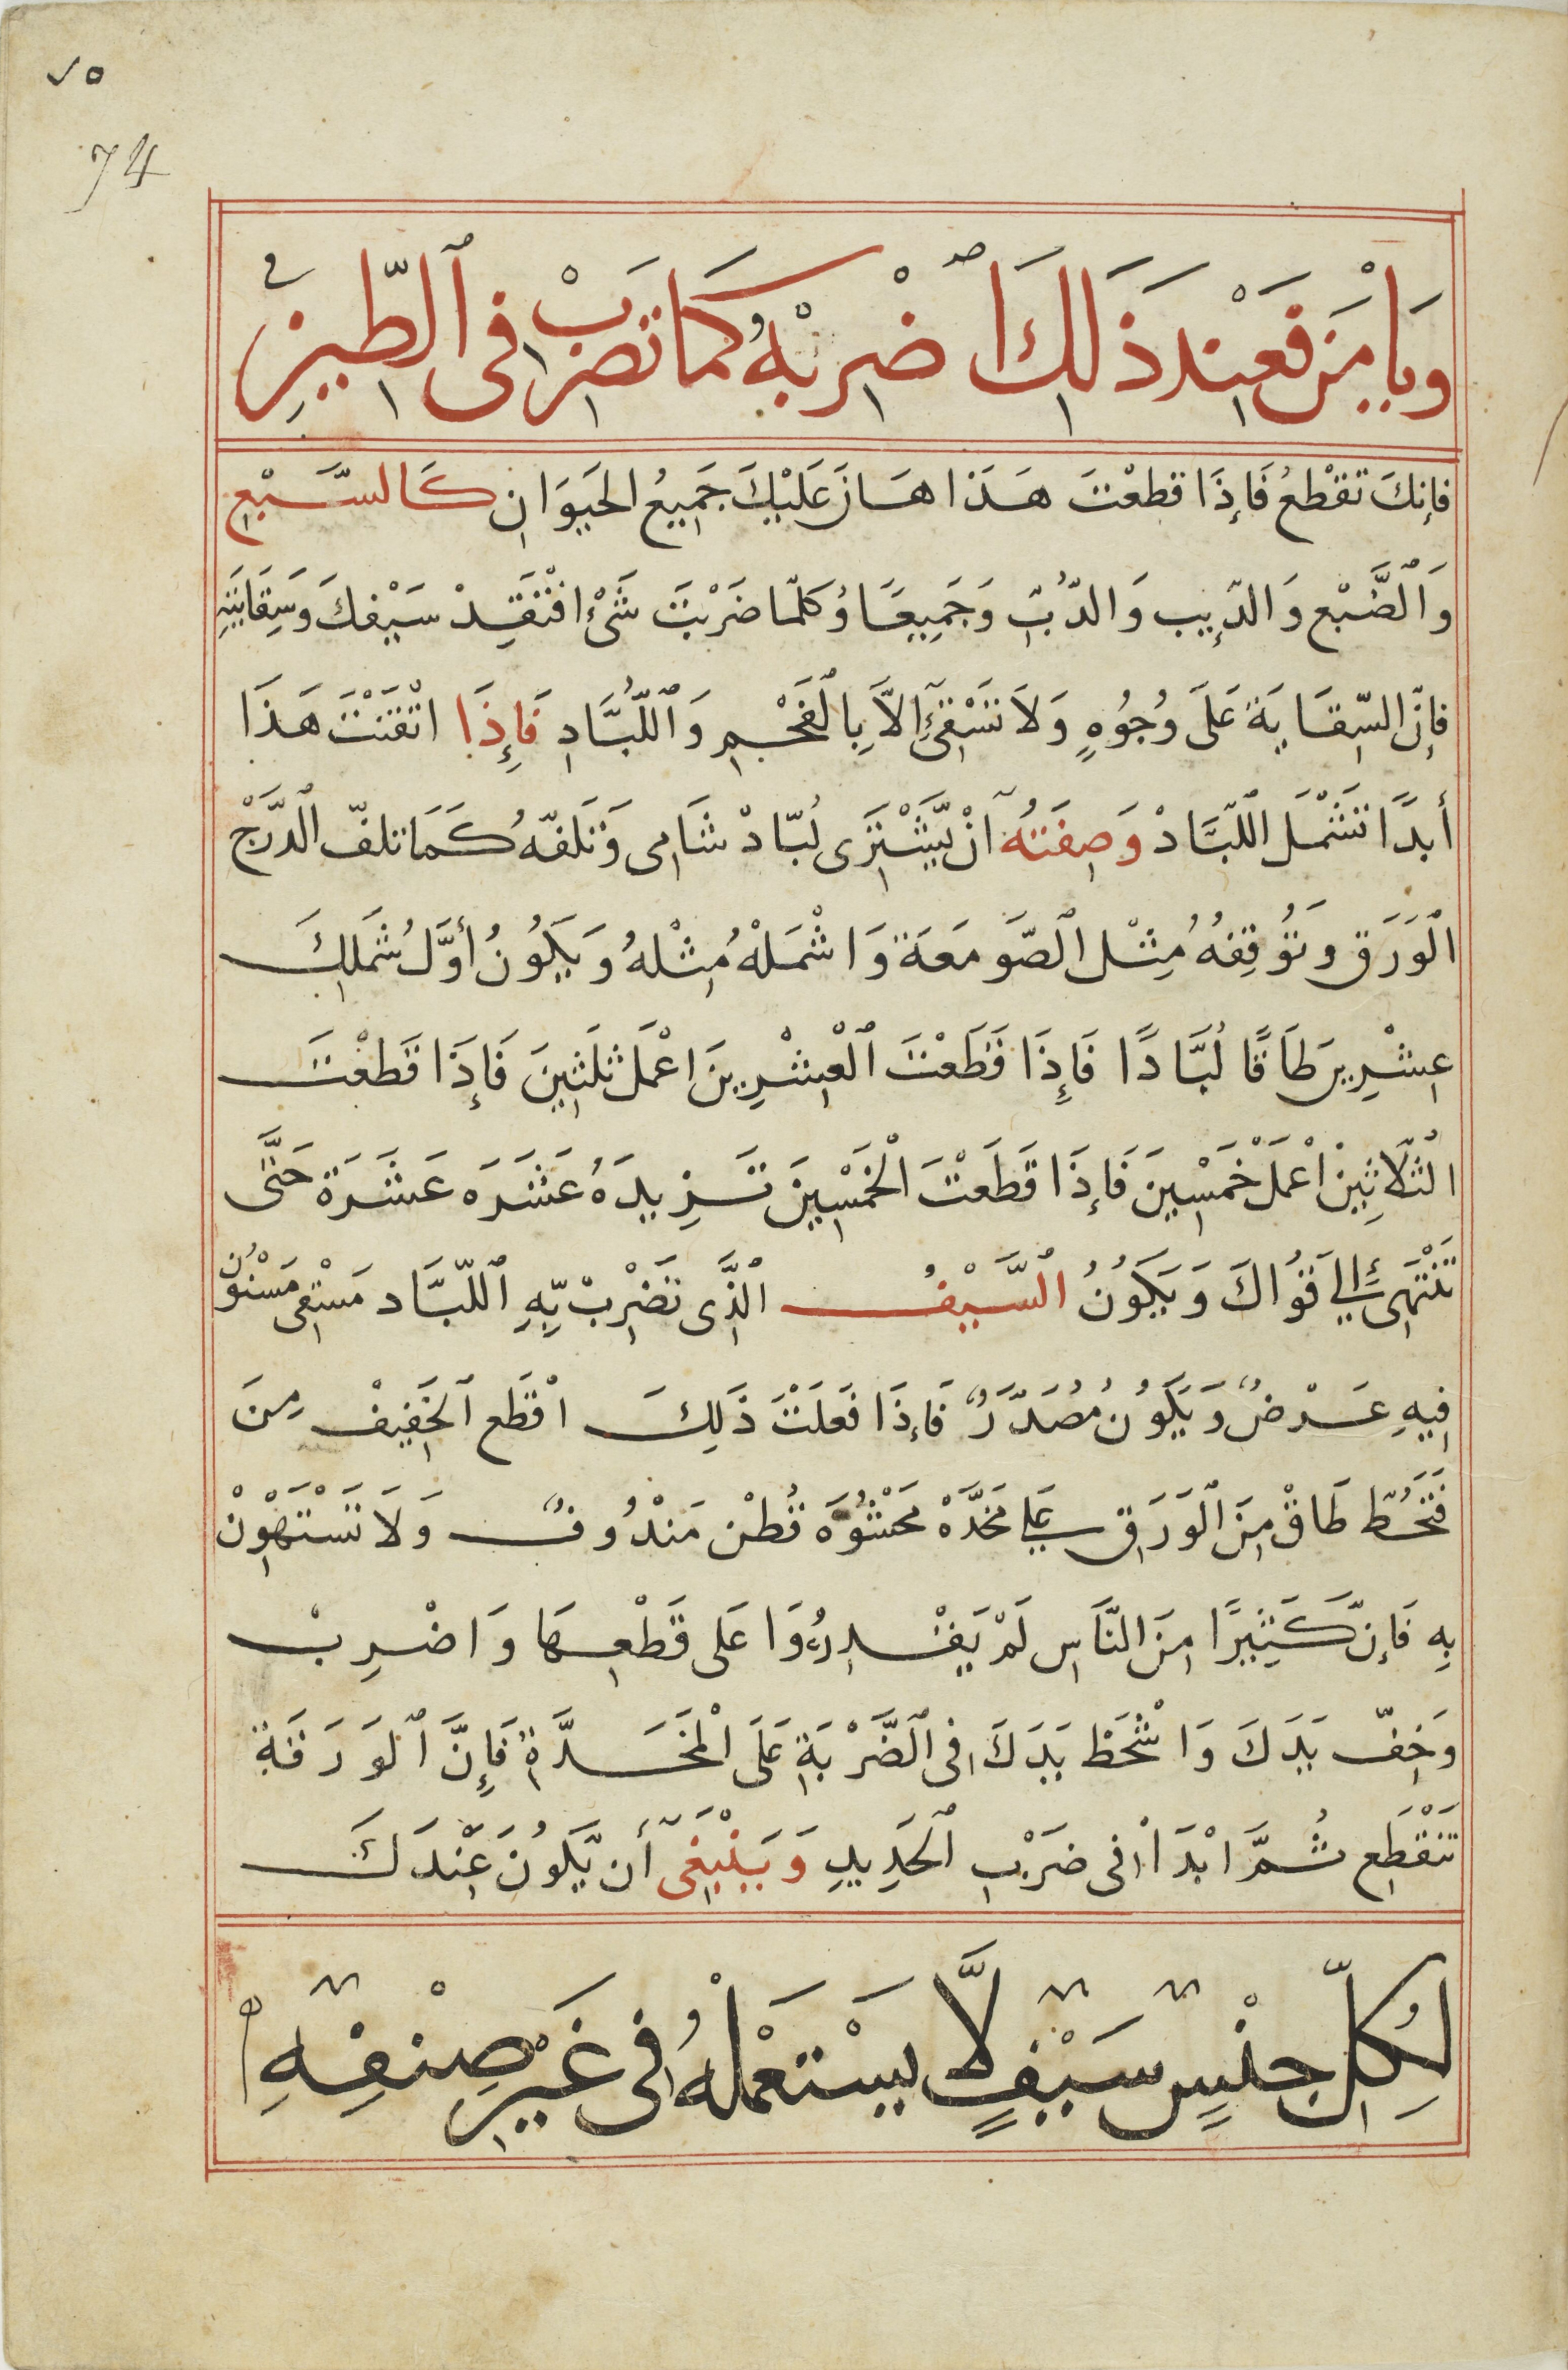 ٧٥
74
وَيَأْمَن فَعِنْدَ ذَلِكَ اضْرِبْهُ كَمَا تَضْرِبْ فِى ٱلطِّيزِ
فإنكَ تقْطعُ فَإِذَا قطعْتَ هَذَا هَانَ عَلَيْكَ جَمِيعُ الحَيَوَانِ كَالسَّبْعِ
وَٱلضَّبْعِ وَالدِّيبِ وَالدُّبِّ وَجَمِيعَا وُكلّما ضَرْبتَ شَىْءٍ افْتَقِدْ سَيْفِكَ وَسِقَايَتِهِ
فإنّ السِّقَايَةَ عَلَى وُجُوُهٍ وَلاَ تَسْقِىَ إلاَّ بِالْفَحْمِ وَٱللُّبَّادِ فَإِذَا اتْقَنْتَ هَذَا
أبدًا تَشْمَل اللّبَّادْ وَصِفَتهُ انْ يَّشْتَرِى لُبّادْ شَامِى وَتَلفّهُ كَمَا تلفّ الدَّرْجْ
ٱلْوَرَقِ وَتُوقِفهُ مِثْل ٱلصّومَعَة وَاشْمَلْهُ مِثْلهُ وَيَكُونُ أوَّلُ شَمَلِكَ
عِشْرِين طَاقًا لُبَّادًا فَإِذَا قَطَعْتَ ٱلْعِشْرِينَ اعْمَل ثلَثِينَ فَإِذَا قَطعْتَ
الثلَاثِينْ اعْمَلْ خَمْسِينَ فَإِذَا قَطَعْتَ الْخَمْسِينَ تَزِيدَهُ عَشَرَه عَشَرَة حَتَّى
تَنْتَهِىَ إلى قُوَاكَ وَيَكَونُ ٱلسَّيْفُ ٱلَّذِى تَضْرِبْ بِّهِ ٱللّبَّاد مَسْقِى مَسْنُونْ
فِيهِ عَرْضٌ وَيَكُون مُصَدَّرٌ فَإِذَا فَعَلَتْ ذَلِكَ اقْطَع ٱلخَفِيفْ مِنَ
فَتَحُطّ طَاقْ مِنَ ٱلْوَرَقِ عَلى مَخَدَّهْ مَحْشُوَّه قُطْن مَنْدُوفٌ وَلَا تَسْتَهْوِنْ
بِهِ فَإنّ كَثِيرًا مِنَ النَّاسِ لَمْ يَقْدِرُوَا عَلى قَطْعِهَا وَاضْرِبْ
وَخِفّ يَدَكَ وَاشْحَطْ يَدَكَ فِى ٱلضَّرْبَةِ عَلَى الْمَخَدَّةِ فَإِنَّ ٱلوَرَقَة
تَنْقَطِع ثُمَّ ابْدَاْ فِى ضَرْبِ ٱلحَدِيدِ وَيَنْبَغَى أَن يَّكُونَ عِنْدَكَ
لِكُلِّ جِنْسٍ سَيْفٍ لَّا يسْتَعْمَلهُ فِى غَيْرِ صِنْفِهِ